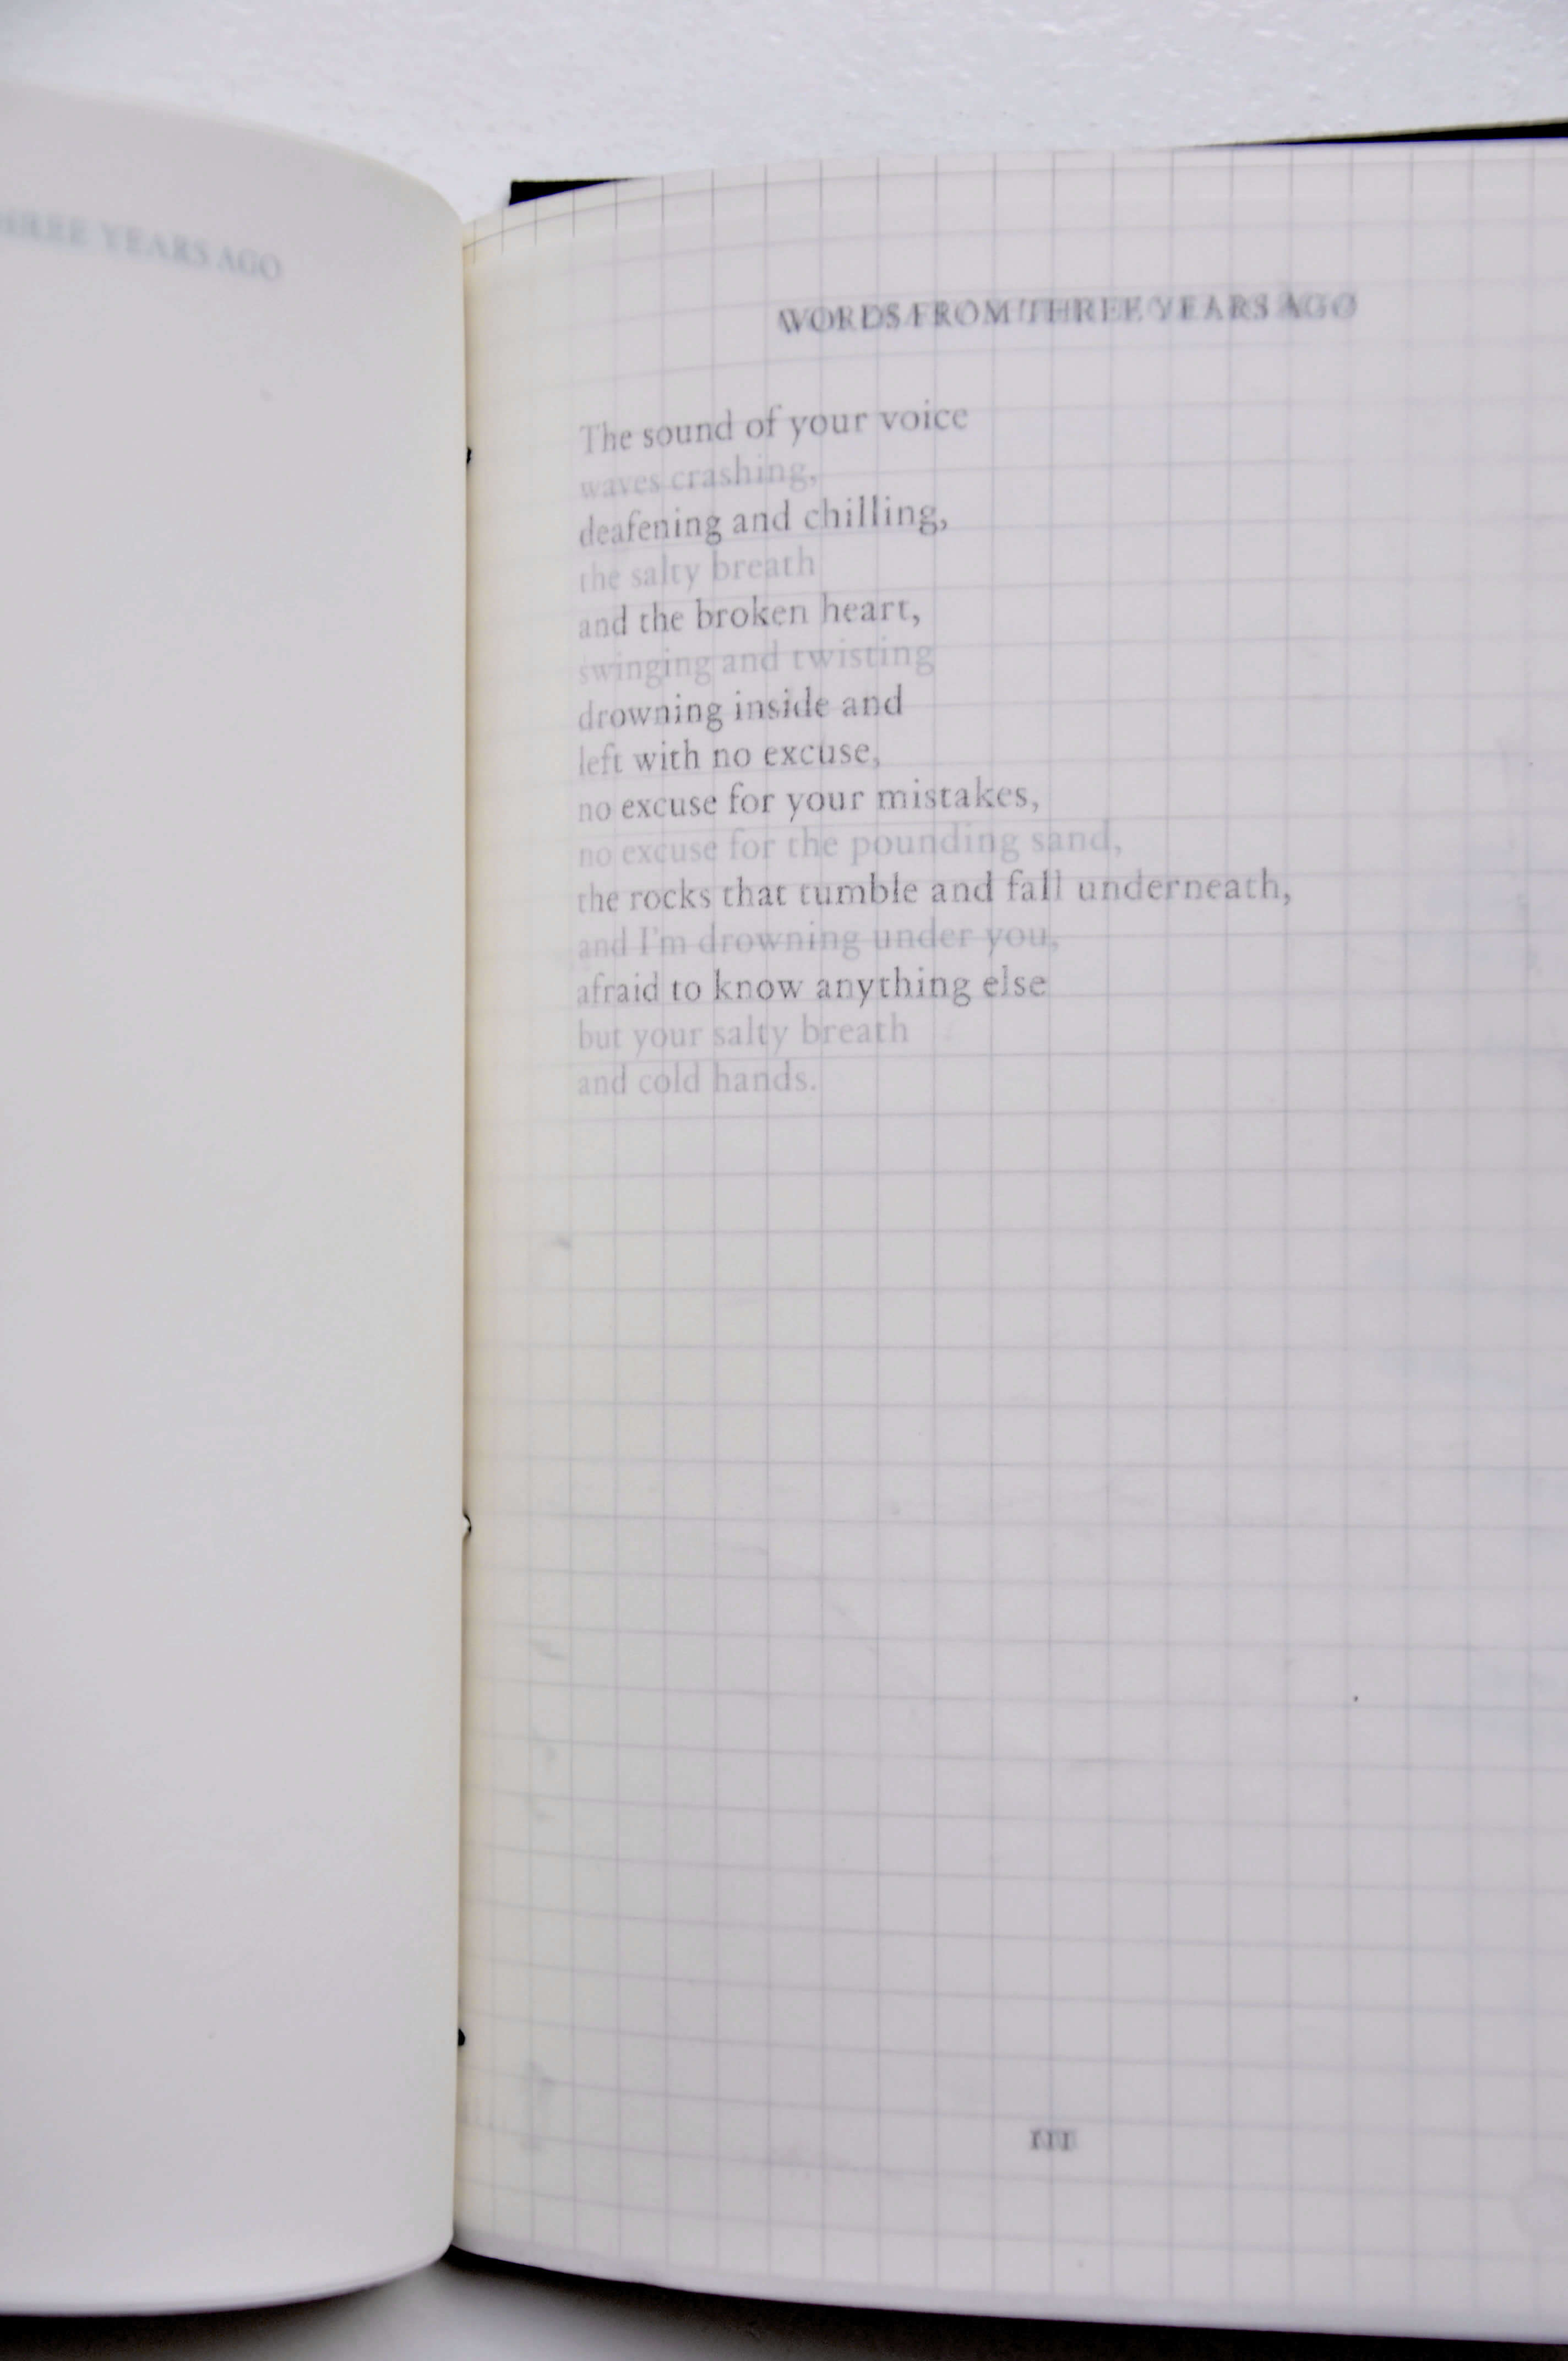 THREE YEARS AGO
WORDS FROM THREE YEARS AGO
The sound of your voice
waves crashing,
deafening and chilling,
the salty breath
and the broken heart,
swinging and twisting
drowning inside and
left with no excuse,
no excuse for your mistakes,
no excuse for the pounding sand,
the rocks that tumble and fall underneath,
and I'm drowning under you,
afraid to know anything else
but your salty breath
and cold hands.
III